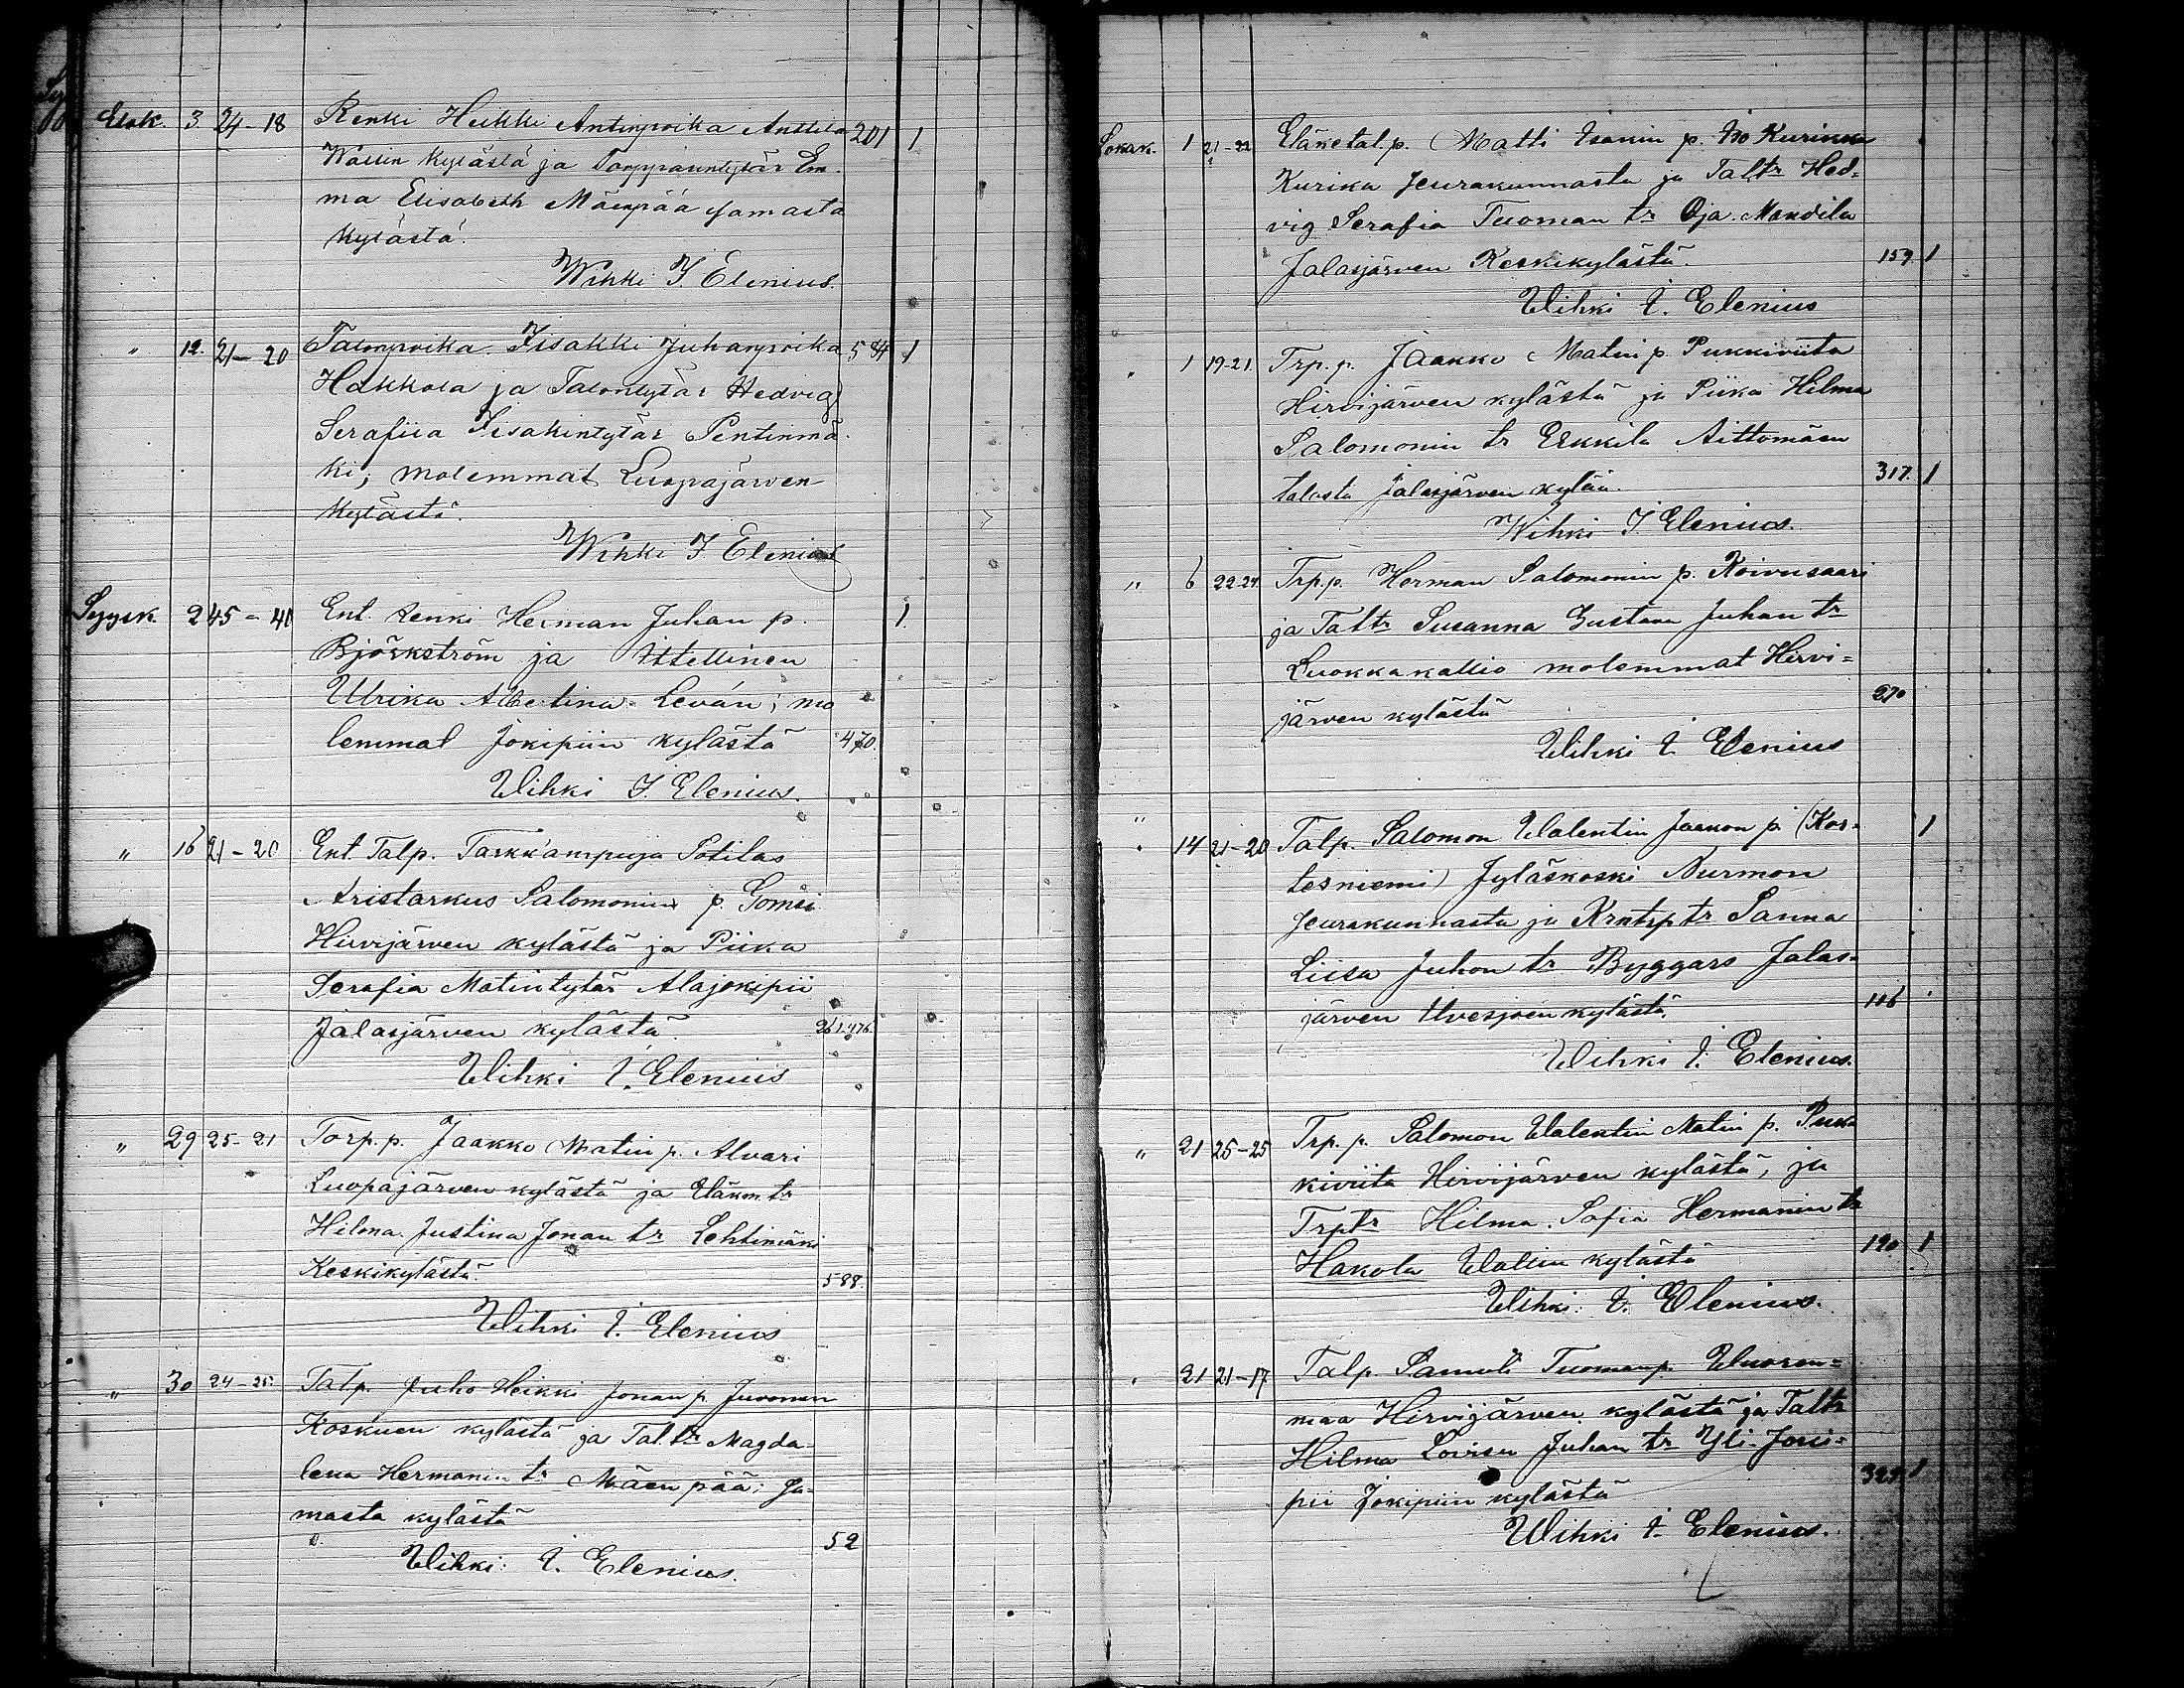 Elok. 3. 24-18 Renki Heikki Antinpoika Anttila 201 1
Wallin Kylästä ja Torpparintytär Em-
ma Elisabeth Mäenpää samasta
Kylästä.
Wihki I Elenius.
" 12. 21-20 Talonpoika Iisakki Juhanpoika 584 1
Hakkola ja Talontytär Hedvig
Serafiia Iisakintytär Pentinmä-
ki; molemmat Luopajärven
Kylästä.
Wihki I Elenius
Syysk. 2 45-40 Ent. renki Herman Juhan p. 1
Björkström ja Ittellinen
Ulrika Albertina Leván; mo
lemmat Jokipiin kylästä 470.
Wihki I. Elenius.
" 16 21-20 Ent. Talp. Tarkk'ampuja Sotilas
Aristarkus Salomonin p. Somŭi
Hirvijärven kylästä ja Piika
Serafia Matintytär Alajokipii
Jalasjärven kylästä 261.476.
Wihki I. Elenius
" 29 25-21 Torp.p. Jaakko Matin p. Alvari
Luopajärven kylästä ja Eläkm. tr
Hilma Justina Jonan tr Lehtimäki
Keskikylästä. 588.
Wihki I. Elenius
" 30 24-25. Talp. Juho Heikki Jonan p. Juvonen
Koskuen kylästä ja Tal.tr Magda-
lena Hermanin tr Mäenpää; Sa-
masta kylästä
52
Wihki: I. Elenius.
Lokak. 1 21-22 Eläketal.p. Matti Isakin p. Iso Kurikka
Kurika seurakunnasta ja Taltr Hed-
vig Serafia Tuoman tr Oja-Mandila
Jalasjärven Keskikylästä. 159 1
Wihki I. Elenius
" 1 19-21. Trp.p. Jaakko Matin p. Pukkiviita
Hirvijärven kylästä ja Piika Hilma
Salomonin tr Erkkila Aittomäen
talosta Jalasjärven kylän. 317. 1
Wihki I. Elenius.
" 6 22-24. Trp.p. Herman Salomonin p. Koivusaari
ja Taltr Susanna Gustava Juhan tr
Luokkakallio molemmat Hirvi-
järven kylästä 270
Wihki I. Elenius
" 14 21-20 Talp. Salomon Walentin Jaakon p. (Kor- 1
tesniemi) Jyläskoski Nurmon
seurakunnasta ja Krntrp tr Sanna
Liisa Juhon tr Byggars Jalas-
järven Ilvesjoen kylästä. 116
Wihki I. Elenius.
" 21 25-25 Trp. p. Salomon Walentin Matin p. Puk
kiviita Hirvijärven kylästä, ja
Trptr Hilma Sofia Hermannin tr
Hakola Wallin kylästä 190 1
Wihki: I. Elenius.
" 21 21-17 Talp. Samuli Tuomanp. Wuoren-
maa Hirvijärven kylästä ja Taltr
Hilma Lovisa Juhan tr Yli-Joki-
pii Jokipiin kylästä 1
Wihki I. Elenius.